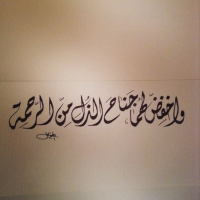 واخفض لهما جناح الذل من الرحمة